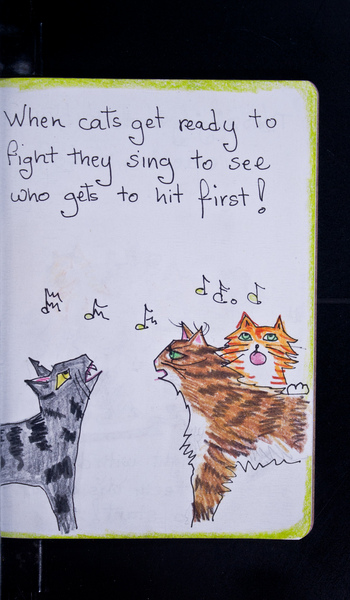 When cats get ready to
fight they sing to see
who gets to hit first!